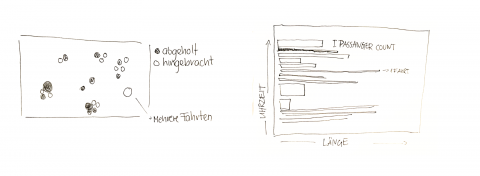 abgeholt
hingebracht
Mehrere Fahrten
I PASSANGER COUNT
1 FAHRT
UHRZEIT
LÄNGE